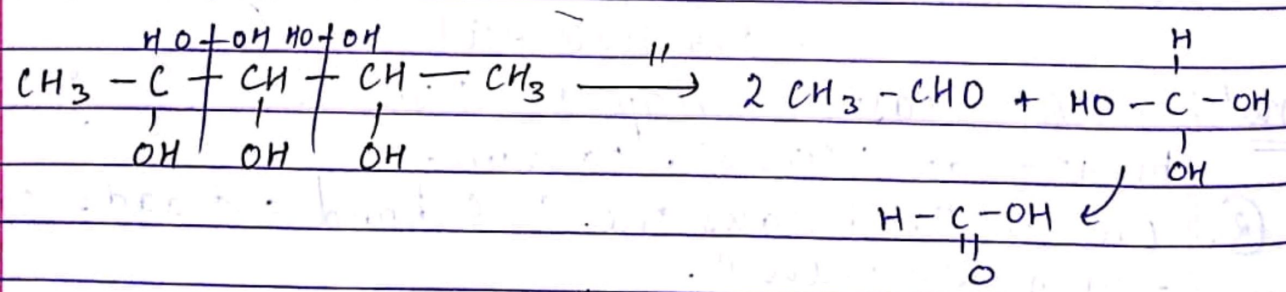 HO OH HO OH
CH3 - C - CH - CH - CH3 → 2 CH3 - CHO + HO - C - OH
H
OH OH OH
OH
H - C - OH
O